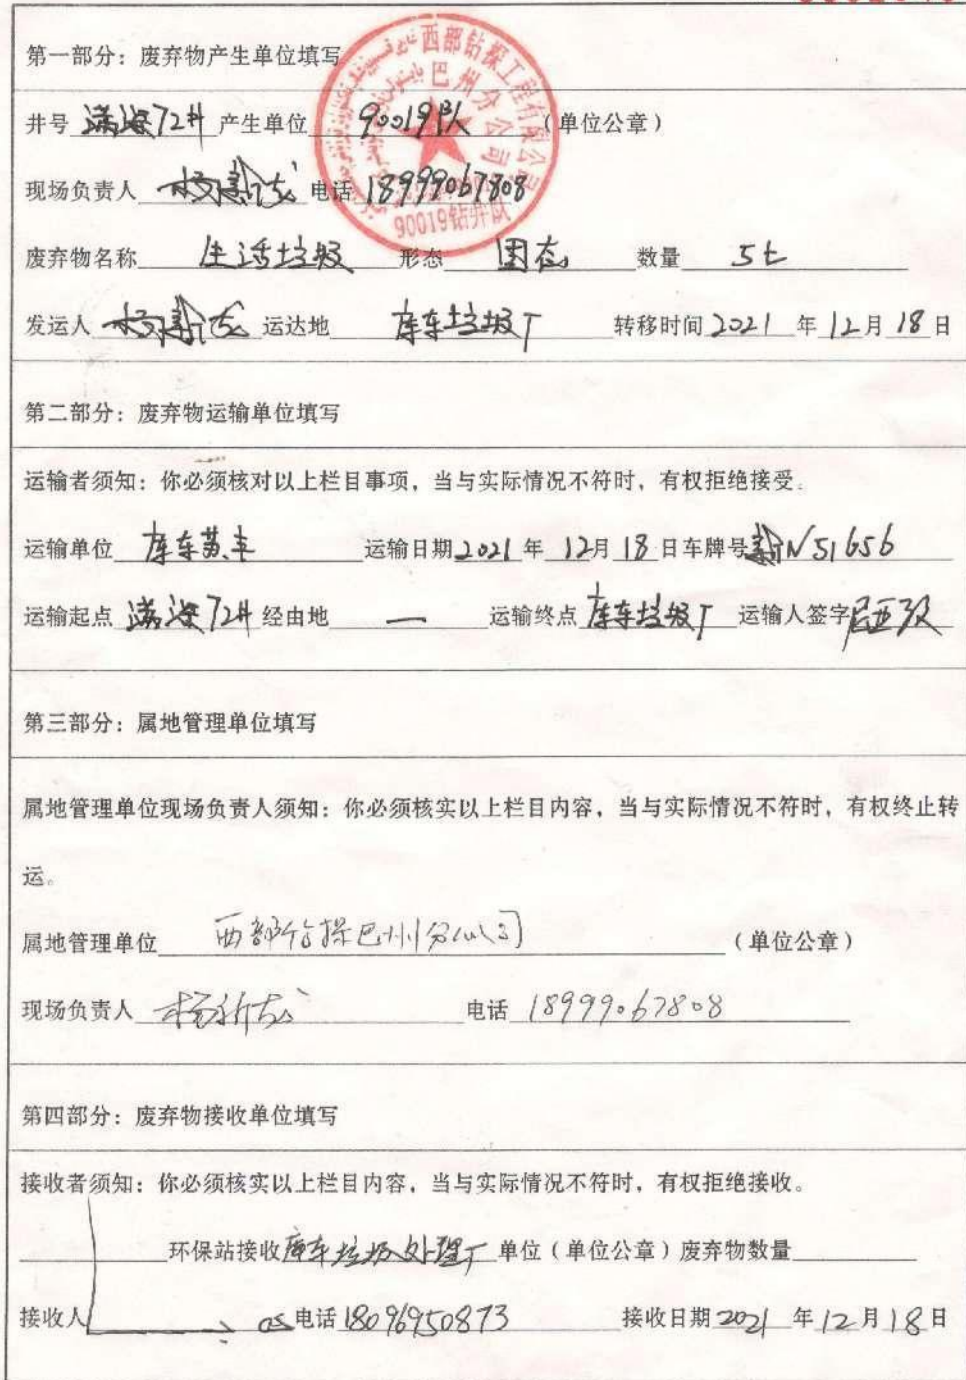 第一部分：废弃物产生单位填写
井号 满深72井 产生单位 90019队 （单位公章）
西部钻探工程有限公司
巴州分公司
90019钻井队
现场负责人 杨新龙 电话 18999067808
废弃物名称 生活垃圾 形态 固态 数量 5t
发运人 杨新龙 运达地 库车垃圾厂 转移时间 2021 年 12 月 18 日
第二部分：废弃物运输单位填写
运输者须知：你必须核对以上栏目事项，当与实际情况不符时，有权拒绝接受。
运输单位 库车 运输日期 2021 年 12 月 18 日车牌号 新N51656
运输起点 满深72井 经由地 一 运输终点 库车垃圾厂 运输人签字
第三部分：属地管理单位填写
属地管理单位现场负责人须知：你必须核实以上栏目内容，当与实际情况不符时，有权终止转
运。
属地管理单位 西部钻探巴州分公司 （单位公章）
现场负责人 杨新龙 电话 18999067808
第四部分：废弃物接收单位填写
接收者须知：你必须核实以上栏目内容，当与实际情况不符时，有权拒绝接收。
环保站接收 库车垃圾处理厂 单位（单位公章）废弃物数量
接收人 电话 18096950873 接收日期 2021 年 12 月 18 日